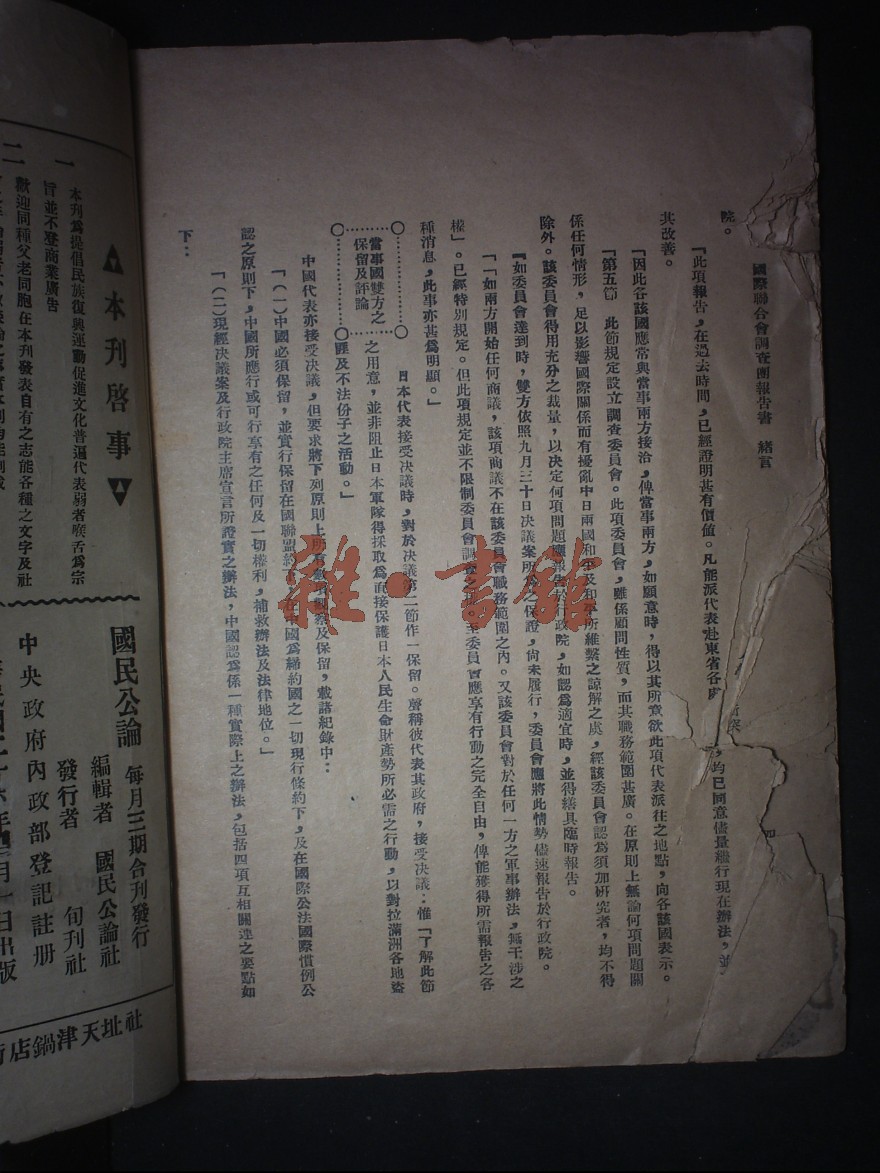 國際聯合會調查團報告書 緒言
院。
「此項報告，在過去時間，已經證明甚有價值。凡能派代表赴東省各 ，均已同意儘量繼行現在辦法，並
其改善。
「因此各該國應常與當事兩方接洽，俾當事兩方，如願意時，得以其所意欲此項代表派往之地點，向各該國表示。
「第五節 此節規定設立調查委員會。此項委員會，雖係顧問性質，而其職務範圍甚廣。在原則上無論何項問題關
係任何情形，足以影響國際關係而有擾亂中日兩國和平及和平所維繫之諒解之虞，經該委員會認為須加研究者，均不得
除外。該委員會得用充分之裁量，以決定何項問題應報告於行政院，如認為適宜時，並得繕具臨時報告。
「如委員會達到時，雙方依照九月三十日決議案所為之保證，尙未履行，委員會應將此情勢儘速報告於行政院。
「『如兩方開始任何商議，該項商議不在該委員會職務範圍之內。又該委員會對於任何一方之軍事辦法，無干涉之
權』。已經特別規定。但此項規定並不限制委員會調查之 。至委員會應享有行動之完全自由，俾能獲得所需報告之各
種消息，此事亦甚為明顯。」
當事國雙方之
保留及評論
日本代表接受决議時，對於决議第二節作一保留。聲稱彼代表其政府，接受決議：惟「了解此節
之用意，並非阻止日本軍隊得採取為直接保護日本人民生命財產勢所必需之行動，以對拉滿洲各地盜
匪及不法份子之活動。」
中國代表亦接受决議，但要求將下列原則上所有 觀察及保留，載諸紀錄中：
「（一）中國必須保留，並實行保留在國聯盟約下，在中國為締約國之一切現行條約下，及在國際公法國際慣例公
認之原則下，中國所應行或可行享有之任何及一切權利，補救辦法及法律地位。」
「（二）現經決議案及行政院主席宣言所證實之辦法，中國認為係一種實際上之辦法，包括四項互相關連之要點如
下：
雜·書館
▲本刊啓事▼
一 本刊為提倡民族復興運動促進文化普遍代表弱者喉舌為宗
旨並不登商業廣告
二 歡迎同種父老同胞在本刊發表自有之志能各種之文字及社
國民公論 每月三期合刊發行
編輯者 國民公論社
發行者 旬刊社
中央政府內政部登記註册
月一日出版
社址天津鍋店街